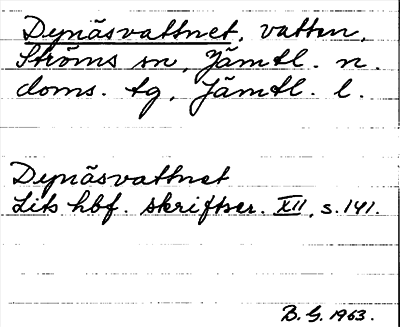 Dynäsvattnet, vatten,
Ströms sn, Jämtl. n.
doms. tg, Jämtl. l.
Dynäsvattnet
Lits hbf. skriftser. XII, s. 141.
B. G. 1963.